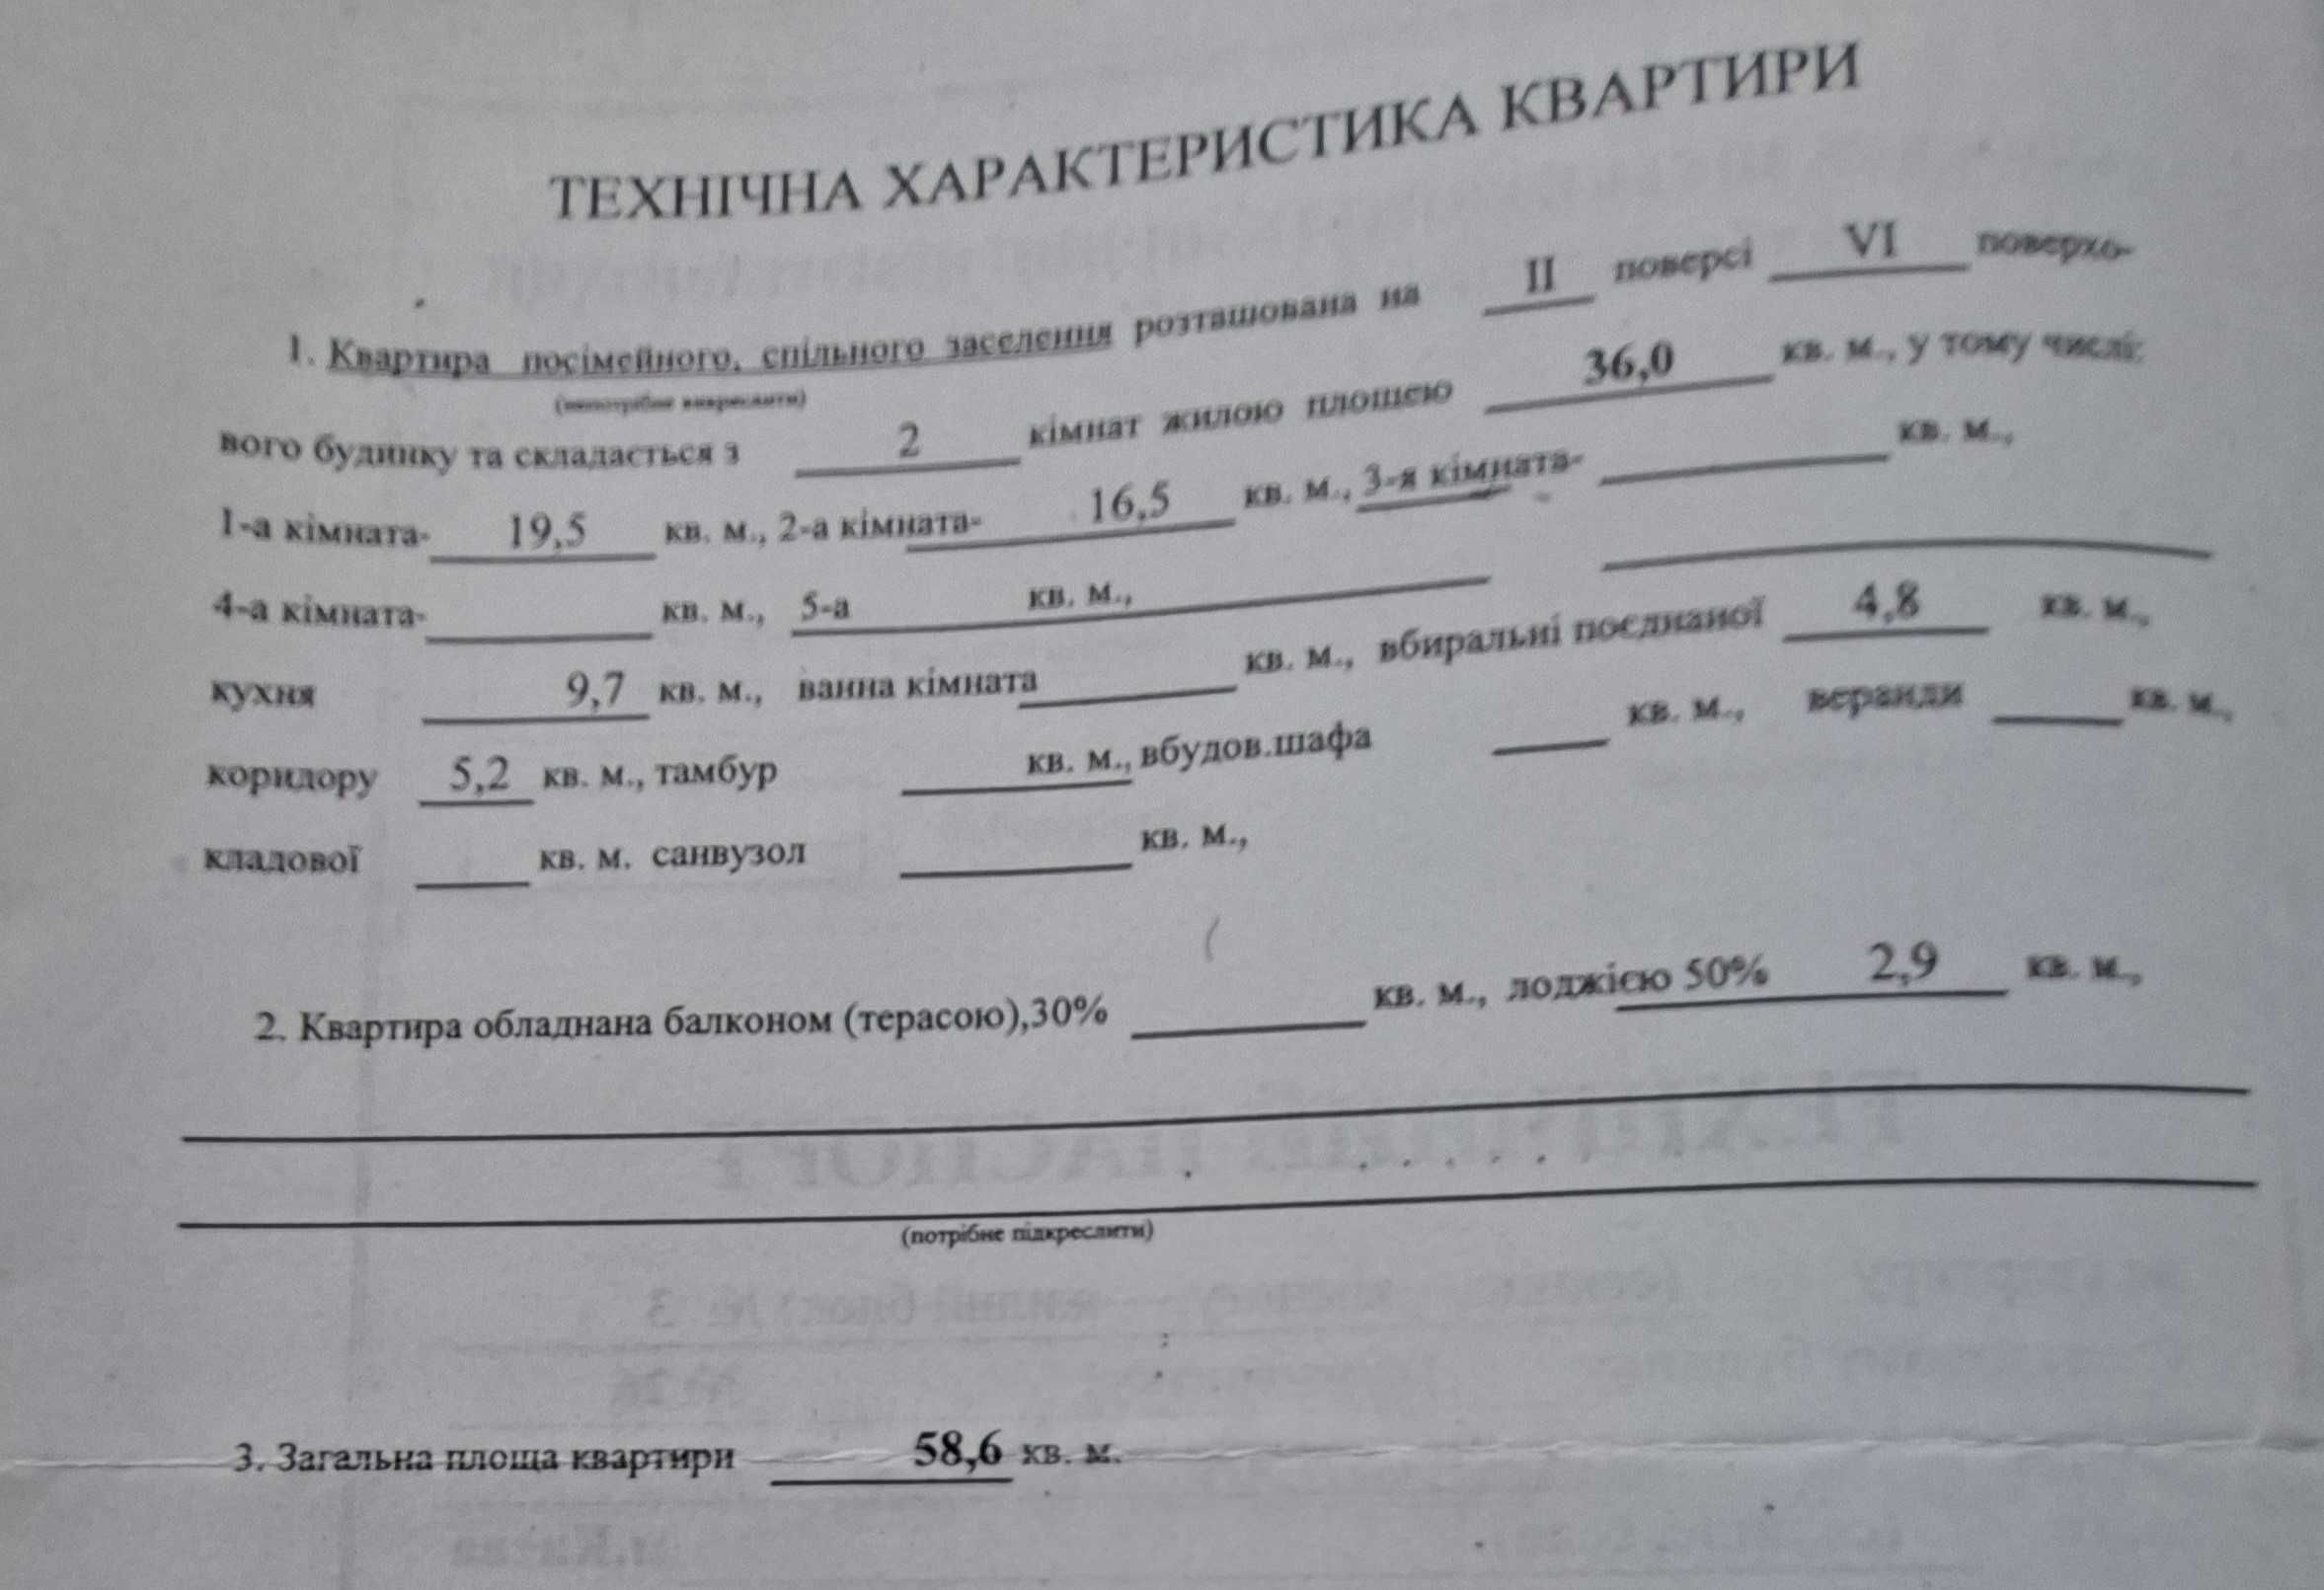 ТЕХНІЧНА ХАРАКТЕРИСТИКА КВАРТИРИ
1. Квартира посімейного, спільного заселення розташована на II поверсі VI поверхо-
(непотрібне викреслити)
вого будинку та складається з 2 кімнат жилою площею 36,0 кв. м., у тому числі:
1-а кімната- 19,5 кв. м., 2-а кімната- 16,5 кв. м., 3-я кімната- кв. м.,
4-а кімната- кв. м., 5-а кв. м.,
кухня 9,7 кв. м., ванна кімната кв. м., вбиральні поєднаної 4,8 кв. м.,
коридору 5,2 кв. м., тамбур кв. м., вбудов.шафа кв. м., веранди кв. м.,
кладової кв. м. санвузол кв. м.,
2. Квартира обладнана балконом (терасою),30% кв. м., лоджією 50% 2,9 кв. м.,
(потрібне підкреслити)
3. Загальна площа квартири 58,6 кв. м.